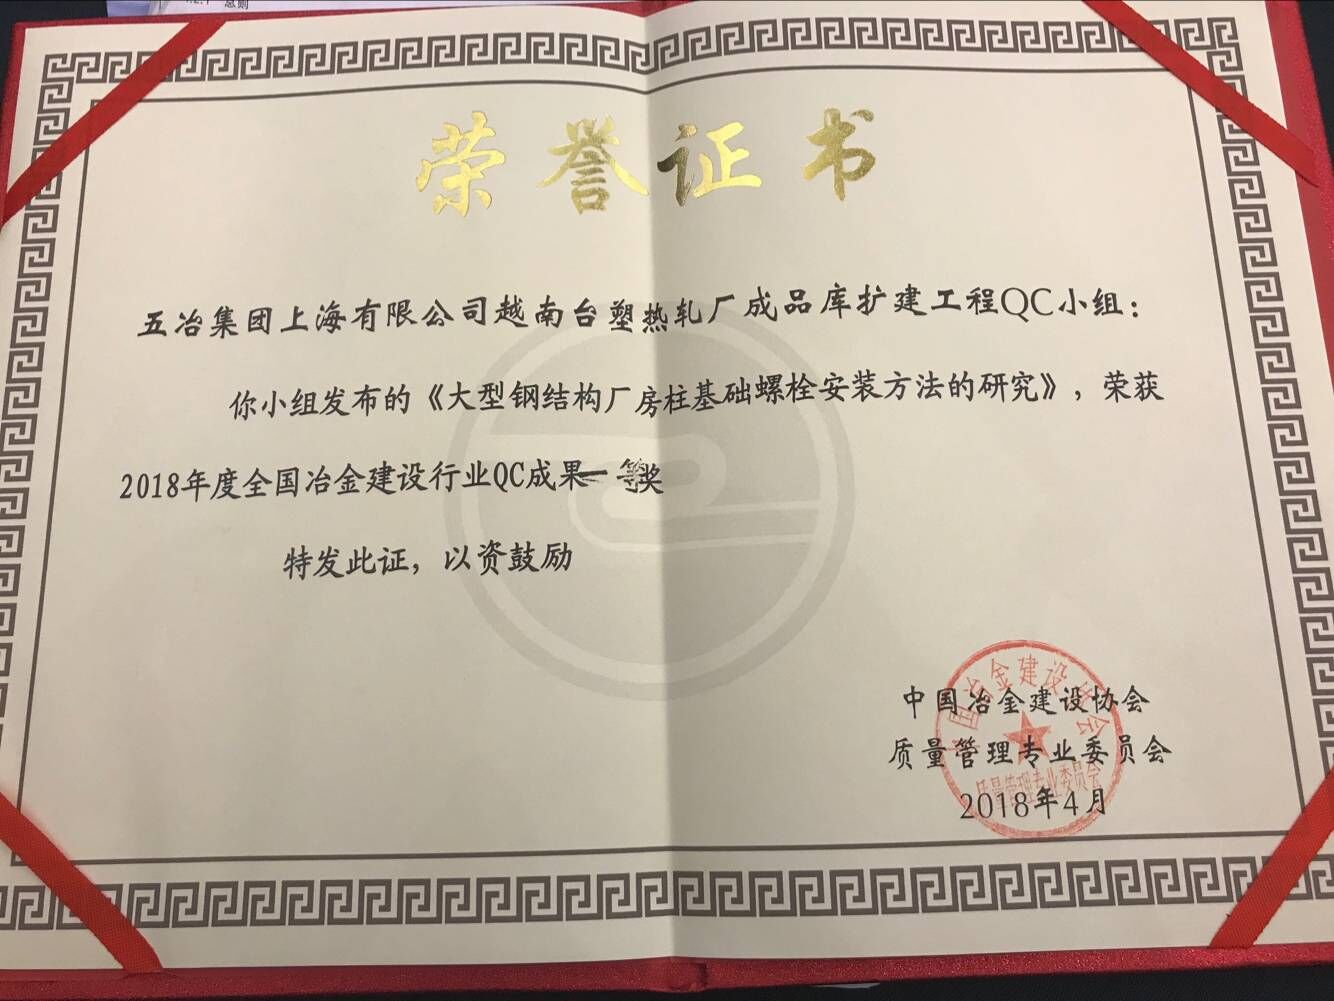 总则
荣誉证书
五冶集团上海有限公司越南台塑热轧厂成品库扩建工程QC小组：
你小组发布的《大型钢结构厂房柱基础螺栓安装方法的研究》，荣获
2018年度全国冶金建设行业QC成果一等奖
特发此证，以资鼓励
中国冶金建设协会
质量管理专业委员会
2018年4月
中国冶金建设协会
质量管理专业委员会